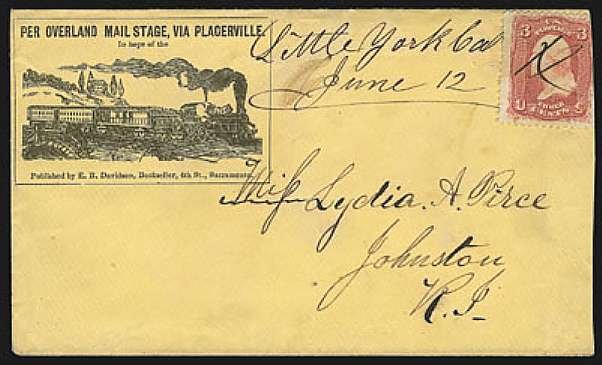 PER OVERLAND MAIL STAGE, VIA PLACERVILLE.
In hope of the
Published by E. B. Davidson, Bookseller, 4th St., Sacramento.
Little York Cal
June 12
3 U.S. POSTAGE 3
U THREE CENTS S
Miss Lydia A. Pirce
Johnston
R. I.